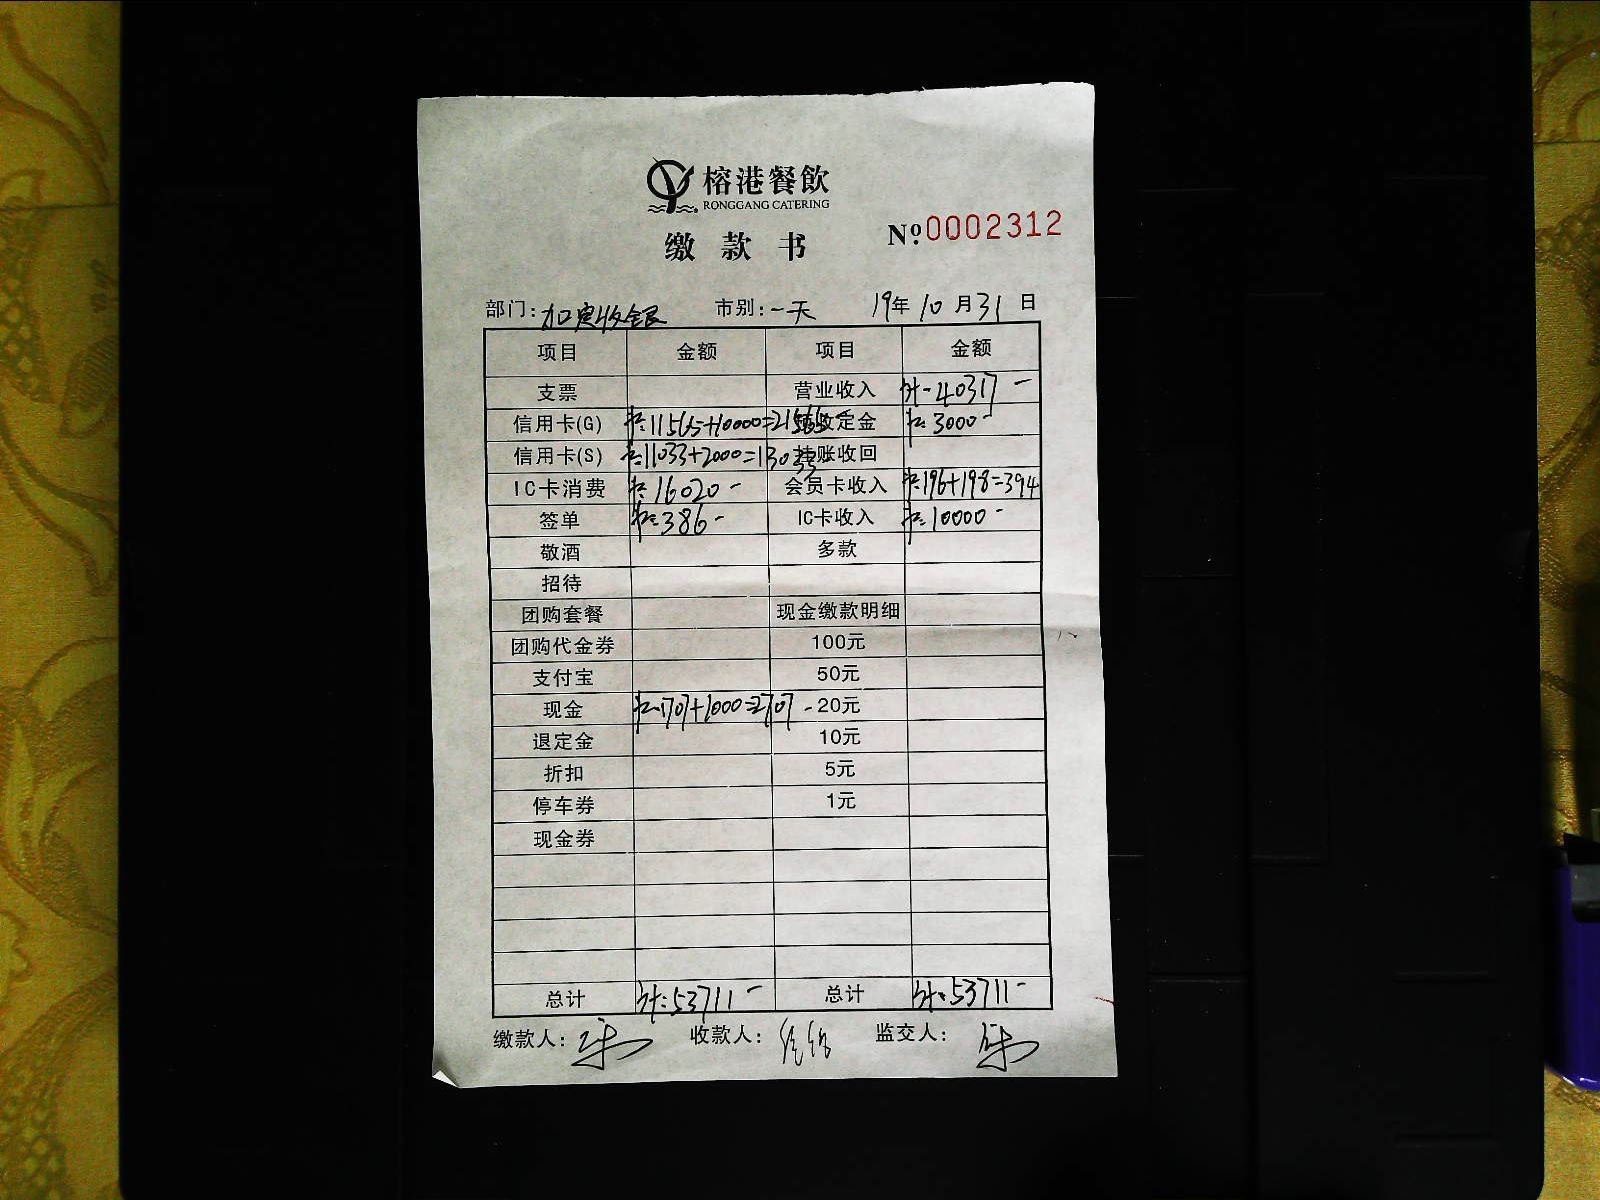 榕港餐飲
RONGGANG CATERING
缴款书 Nº 0002312
部门: 加惠收银 市别: 一天 19年10月31日
项目 金额 项目 金额
支票 营业收入 计-40317-
信用卡(G) 11565+10000=21565- 收定金 3000-
信用卡(S) 11033+2000=13033- 挂账收回
IC卡消费 16020- 会员卡收入 196+198=394
签单 386- IC卡收入 10000-
敬酒 多款
招待
团购套餐 现金缴款明细
团购代金券 100元
支付宝 50元
现金 1707+1000=2707- 20元
退定金 10元
折扣 5元
停车券 1元
现金券
总计 计:53711- 总计 计:53711-
缴款人: 收款人: 监交人: